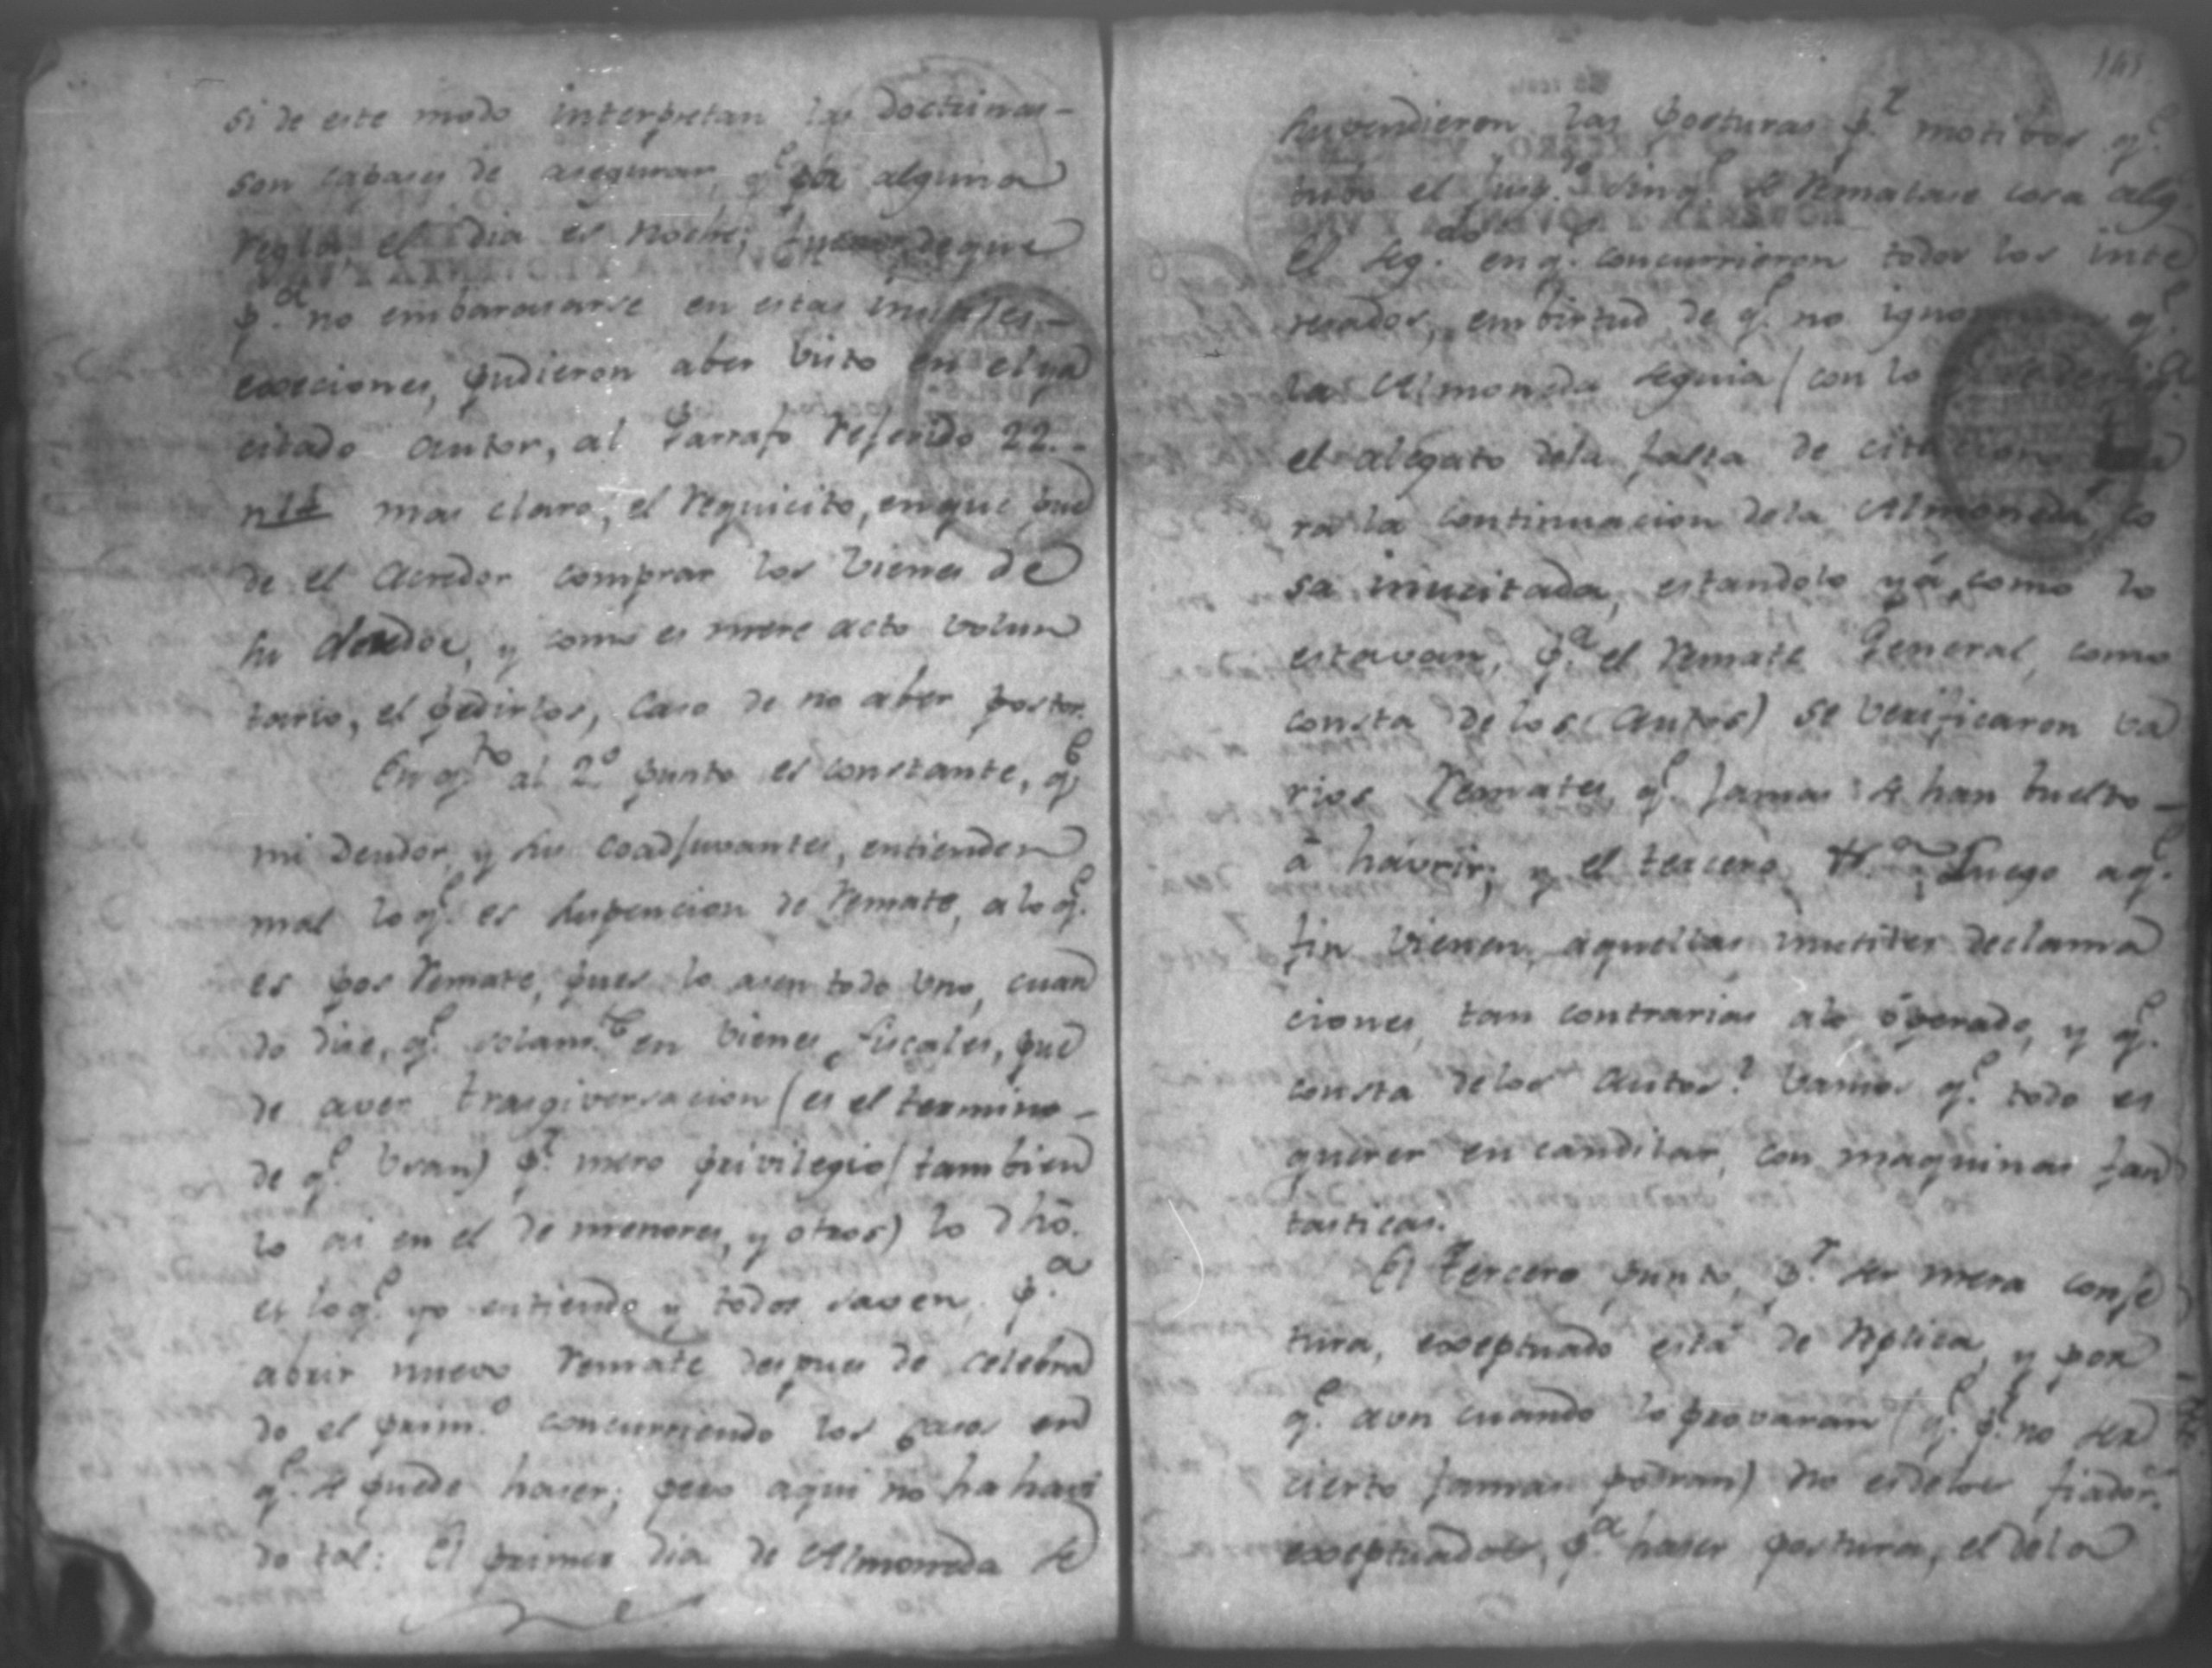 si de este modo interpretan las doctrinas -
son capases de asegurar, q.e por alguna
regla el dia es noche;
p.a no embarasarse en estas inutiles -
execiones, pudieron aber visto en el ya
citado autor, al Parrafo referido 22. -
mas claro, el requicito, en que pue
de el acredor comprar los bienes de
su deudor, y como es mere acto volun
tario, el pedirlos, caso de no aber postor.
En q.to al 2.o punto es constante, q.e
mi deudor, y sus coadjuvantes, entienden
mal lo q.e es suspencion de remate, a lo q.e
es pos remate, pues lo asen todo uno, cuan
do dise, q.e solam.te en bienes fiscales, pue
de aver trasgiversacion (es el termino -
de q.e usan) p.r mero privilegio (tambien
lo ai en el de menores, y otros) lo dho.
es lo q.e yo entiendo y todos saven, p.a
abrir nuevo remate despues de celebra
do el prim.o concurriendo los casos en
q.e se puede haser; pero aqui no ha havi
do tal: El primer dia de Almoneda se
161
suspendieron las posturas p.r motibos q.e
tubo el jusg.do sin q.e se rematase cosa alg
El seg.do en q.e concurrieron todos los inte
resados, en birtud de q.e no q.e
la Almoneda seguia (con lo
el alegato dela falta de
ra la continuacion dela Almoneda, co
sa inucitada, estandolo ya, como lo
estavan, p.a el remate General, como
consta de los Autos) se verificaron va
rios remates, q.e jamas se han buelto -
á havrir; y el tercero Luego a q.e
fin vienen, aquellas inutiles declama
ciones, tan contrarias alo operado, y q.e
consta delos autos? Vamos q.e todo es
querer encandilar, con maquinas fan
tasticas.
El tercero punto, p.r ser mera conje
tura, exeptuado está de replica, y por
q.e aun cuando lo provaran (q.e p.r no ser
cierto jamas podran) no es delos fiador.s
exeptuados, p.a haser postura, el dela